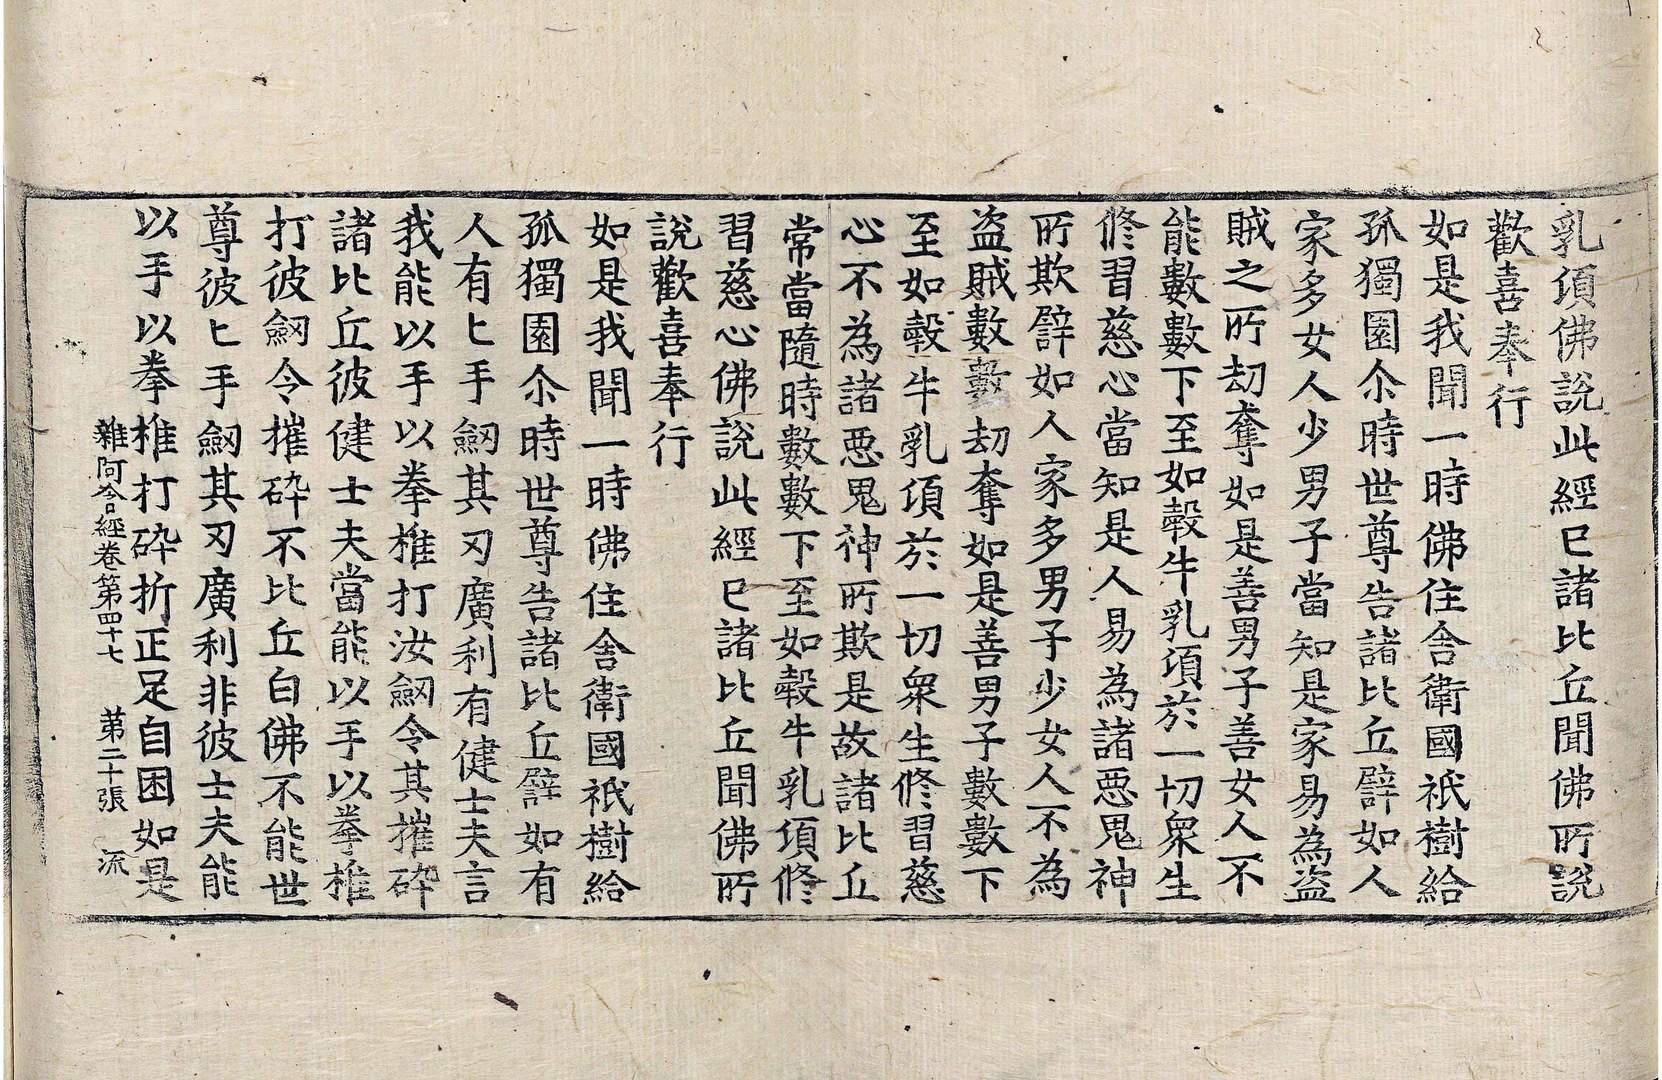 乳頃佛說此經已諸比丘聞佛所說
歡喜奉行
如是我聞一時佛住舍衛國祇樹給
孤獨園尒時世尊告諸比丘譬如人
家多女人少男子當知是家易為盜
賊之所劫奪如是善男子善女人不
能數數下至如𤚲牛乳頃於一切衆生
修習慈心當知是人易為諸惡鬼神
所欺譬如人家多男子少女人不為
盜賊數數劫奪如是善男子數數下
至如𤚲牛乳頃於一切衆生修習慈
心不為諸惡鬼神所欺是故諸比丘
常當隨時數數下至如𤚲牛乳頃修
習慈心佛說此經已諸比丘聞佛所
說歡喜奉行
如是我聞一時佛住舍衛國祇樹給
孤獨園尒時世尊告諸比丘譬如有
人有匕手劒其刃廣利有健士夫言
我能以手以拳椎打汝劒令其摧碎
諸比丘彼健士夫當能以手以拳椎
打彼劒令摧碎不比丘白佛不能世
尊彼匕手劒其刃廣利非彼士夫能
以手以拳椎打碎折正足自困如是
雜阿含經卷第四十七 第二十張 流